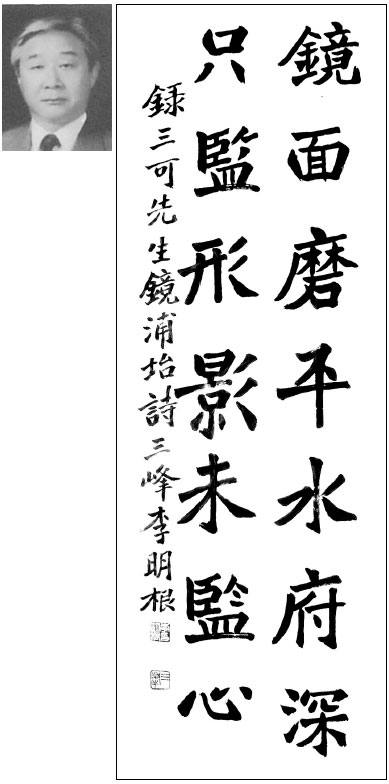 鏡面磨平水府深
只監形影未監心
録三可先生鏡浦坮詩三峰李明根